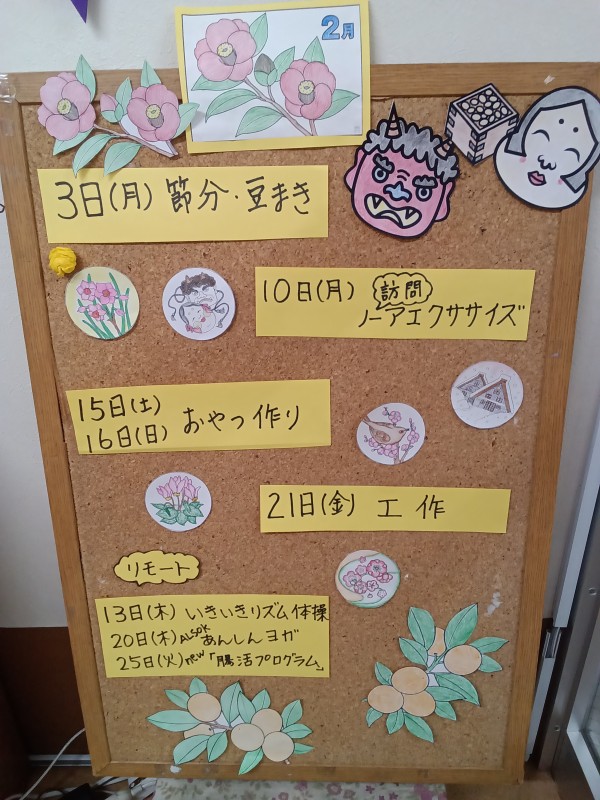 2月
3日(月) 節分・豆まき
10日(月) 訪問
ノーアエクササイズ
15日(土)
16日(日) おやつ作り
21日(金) 工作
リモート
13日(木) いきいきリズム体操
20日(木) ALSOK あんしんヨガ
25日(火) new 「腸活プログラム」